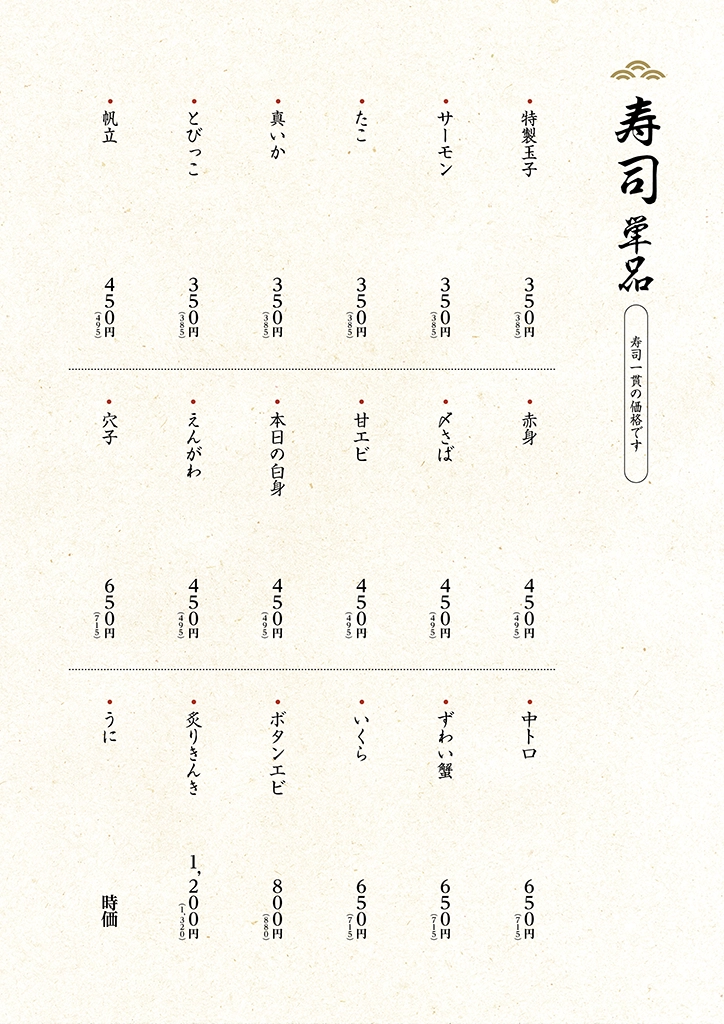 寿司 単品
寿司一貫の価格です
・特製玉子 350円(385)
・サーモン 350円(385)
・たこ 350円(385)
・真いか 350円(385)
・とびっこ 350円(385)
・帆立 450円(495)
・赤身 450円(495)
・〆さば 450円(495)
・甘エビ 450円(495)
・本日の白身 450円(495)
・えんがわ 450円(495)
・穴子 650円(715)
・中トロ 650円(715)
・ずわい蟹 650円(715)
・いくら 650円(715)
・ボタンエビ 800円(880)
・炙りきんき 1,200円(1,320)
・うに 時価